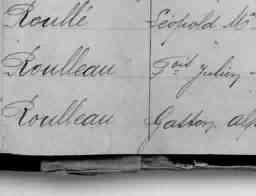 Roullé Léopold M
Roulleau F^ois Julien
Roulleau Gaston Alp